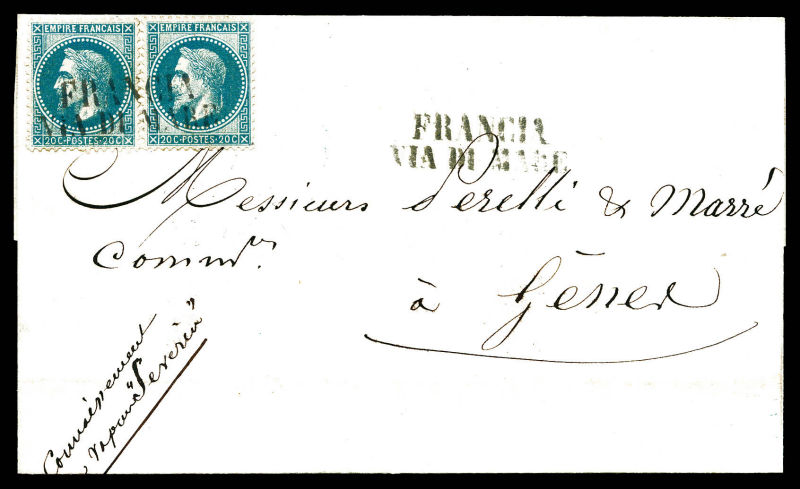 EMPIRE FRANÇAIS
20C·POSTES·20C
EMPIRE FRANÇAIS
20C·POSTES·20C
FRANCIA
VIA DI MARE
FRANCIA
VIA DI MARE
Messieurs Perelli & Marré
Comm.rs
à Gênes
Connaissement
vapeur "Séverin"